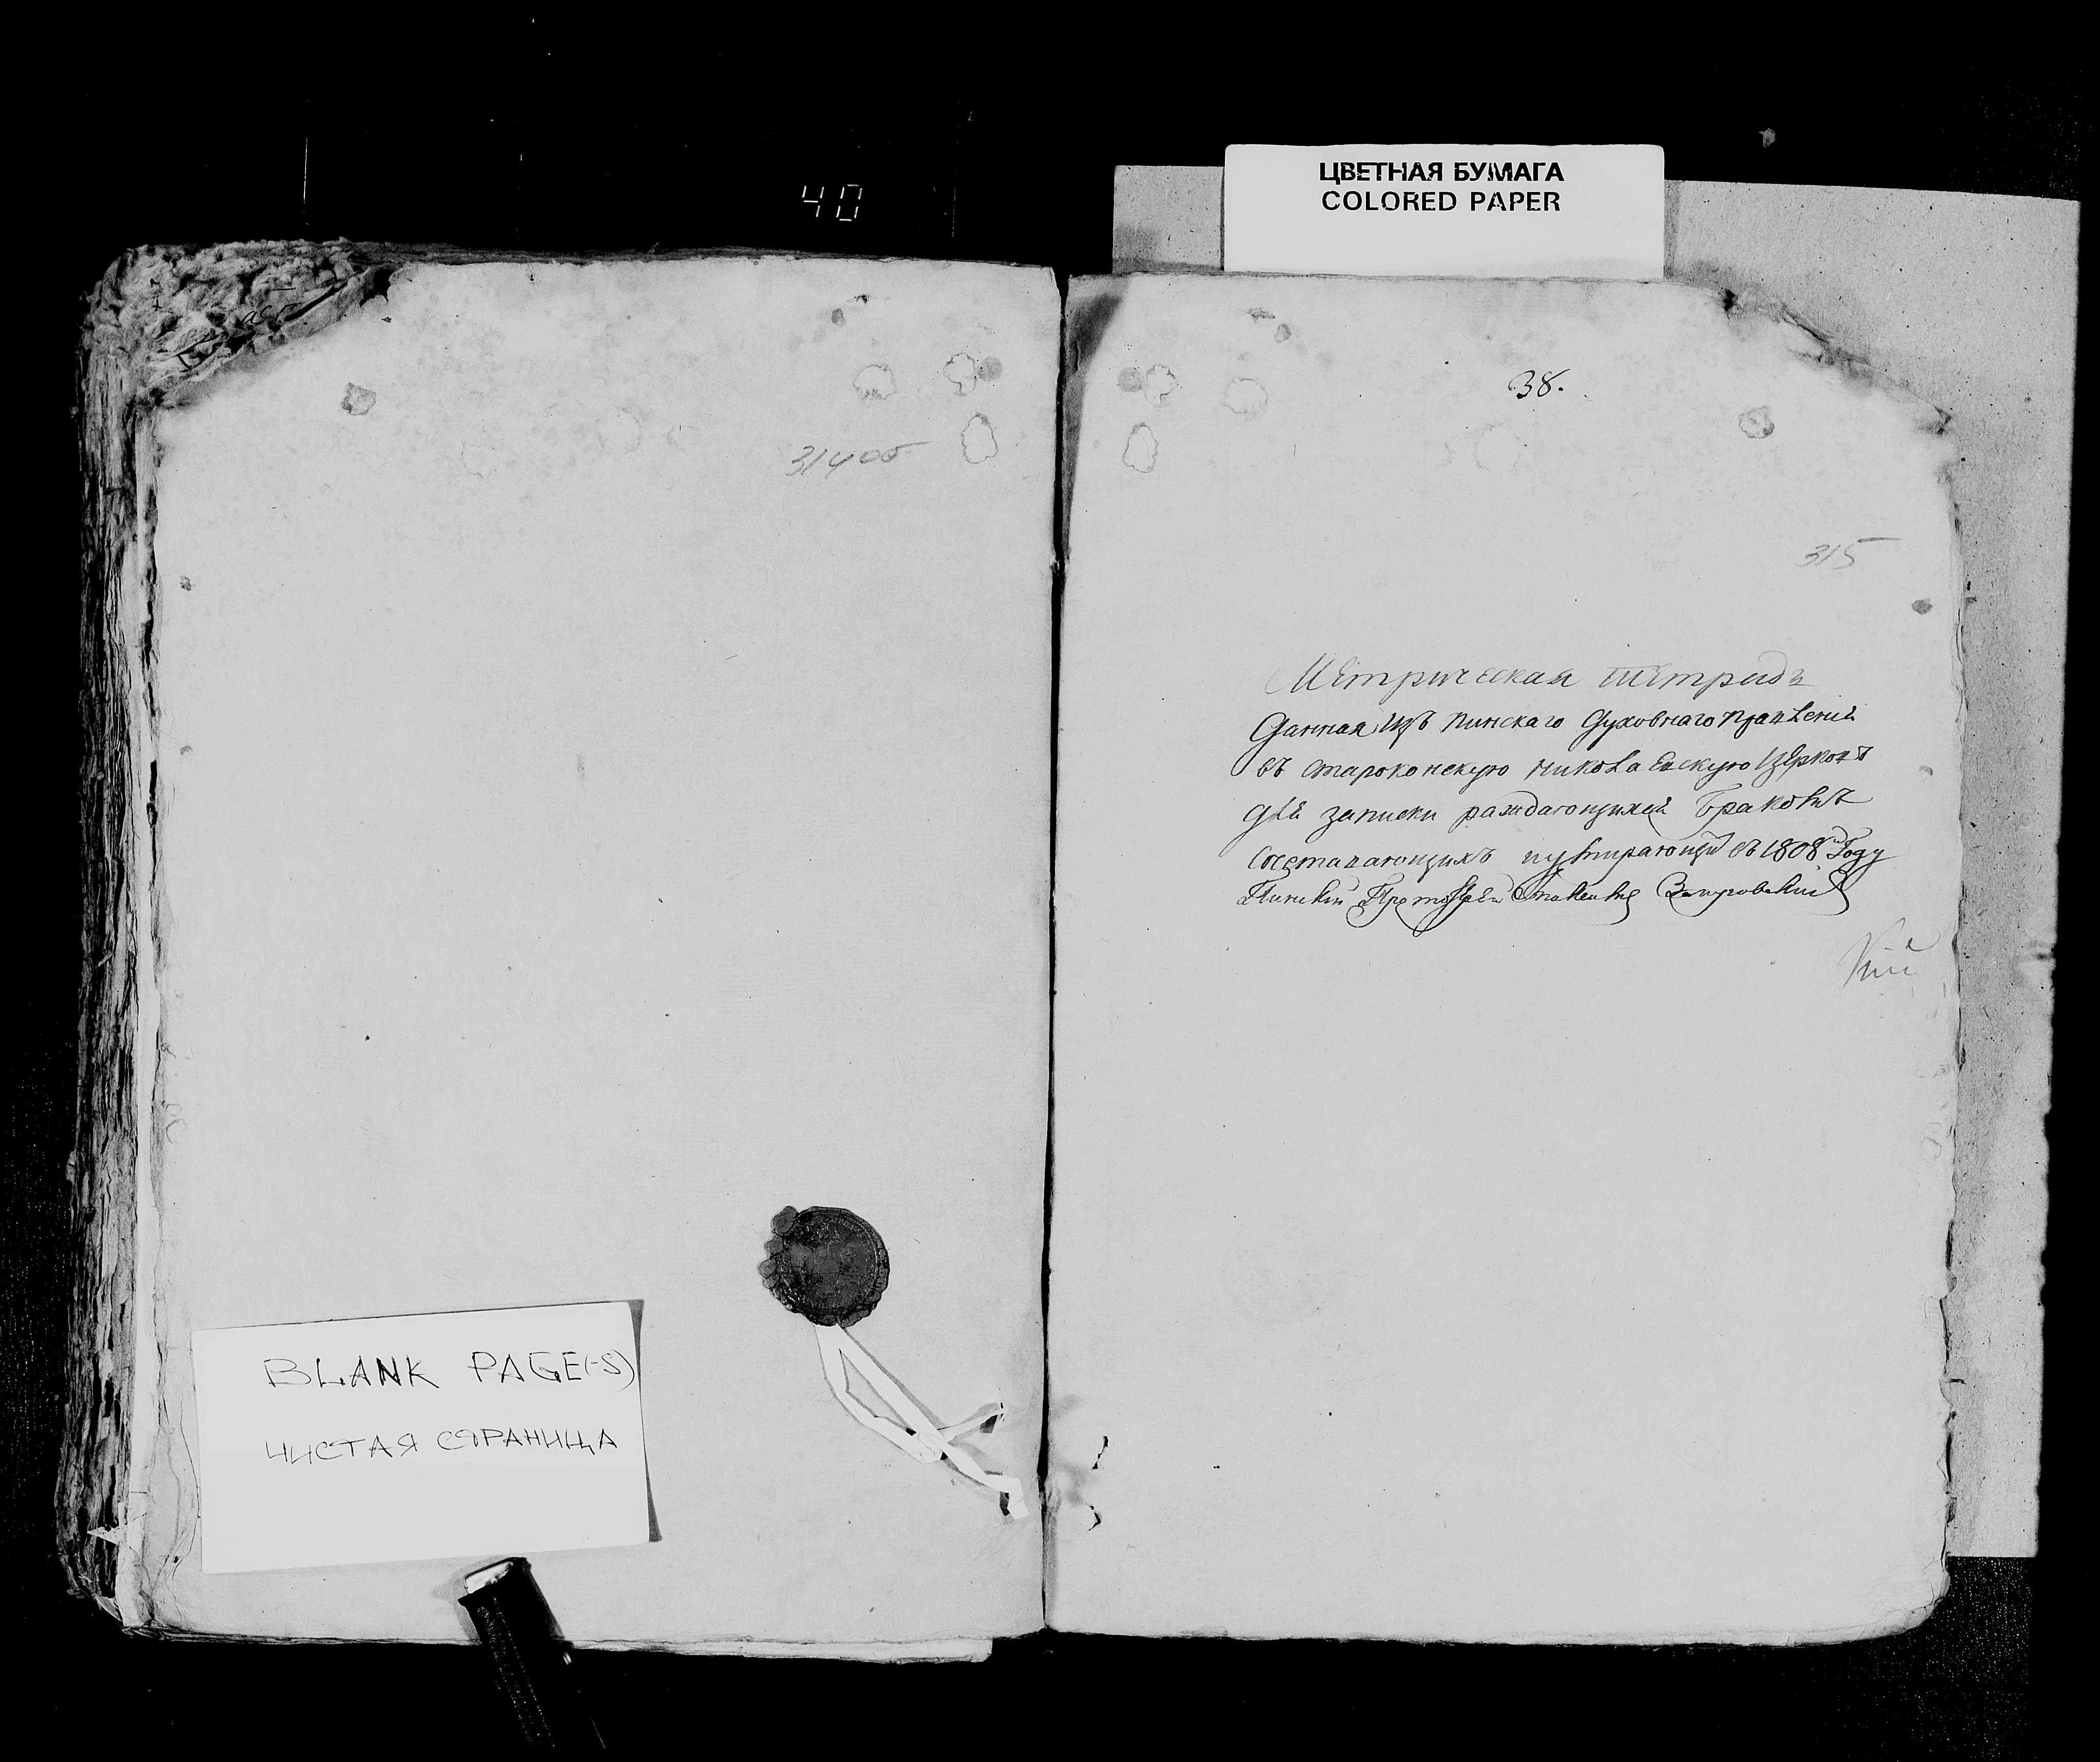 40
ЦВЕТНАЯ БУМАГА
COLORED PAPER
38.
314об
315
Метрическая тетрадь
Данная изъ пинскаго Духовнаго правленія
въ староконскую николаевскую Церковъ
для записки раждающихся Браковъ
сочетавающихъ и умирающих въ 1808м Году
Пинскій Протоіерей
BLANK PAGE(-S)
ЧИСТАЯ СТРАНИЦА